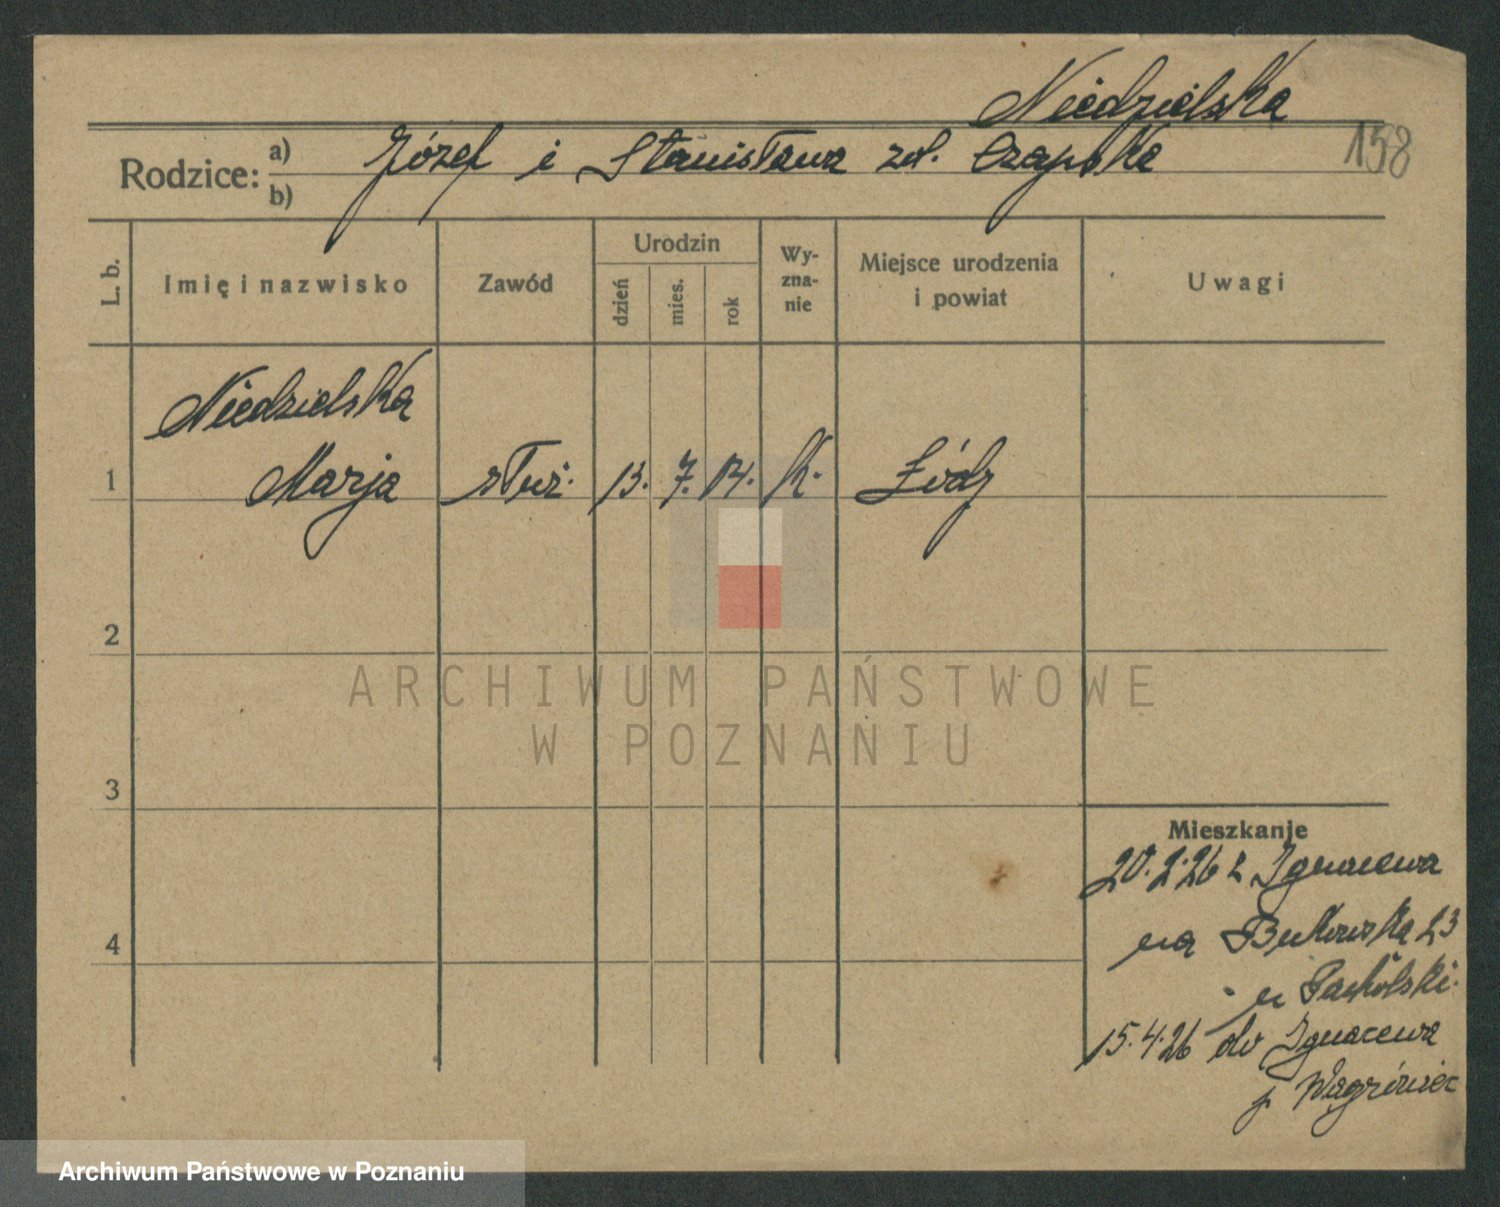 Niedzielska
Rodzice: a) Józef i Stanisława zd. Czapska
158
b)
L. b.
Imię i nazwisko
Zawód
Urodzin
dzień
mies.
rok
Wy-
zna-
nie
Miejsce urodzenia
i powiat
Uwagi
Niedzielska
1 Marja służ. 13. 7. 14. k. Łódź
2
3
4
Mieszkanie
20.2.26 z Ignacewa
na Bukowska 23
u Pacholski.
15.4.26 do Ignacewa
p. Wągrówiec
ARCHIWUM PAŃSTWOWE
W POZNANIU
Archiwum Państwowe w Poznaniu